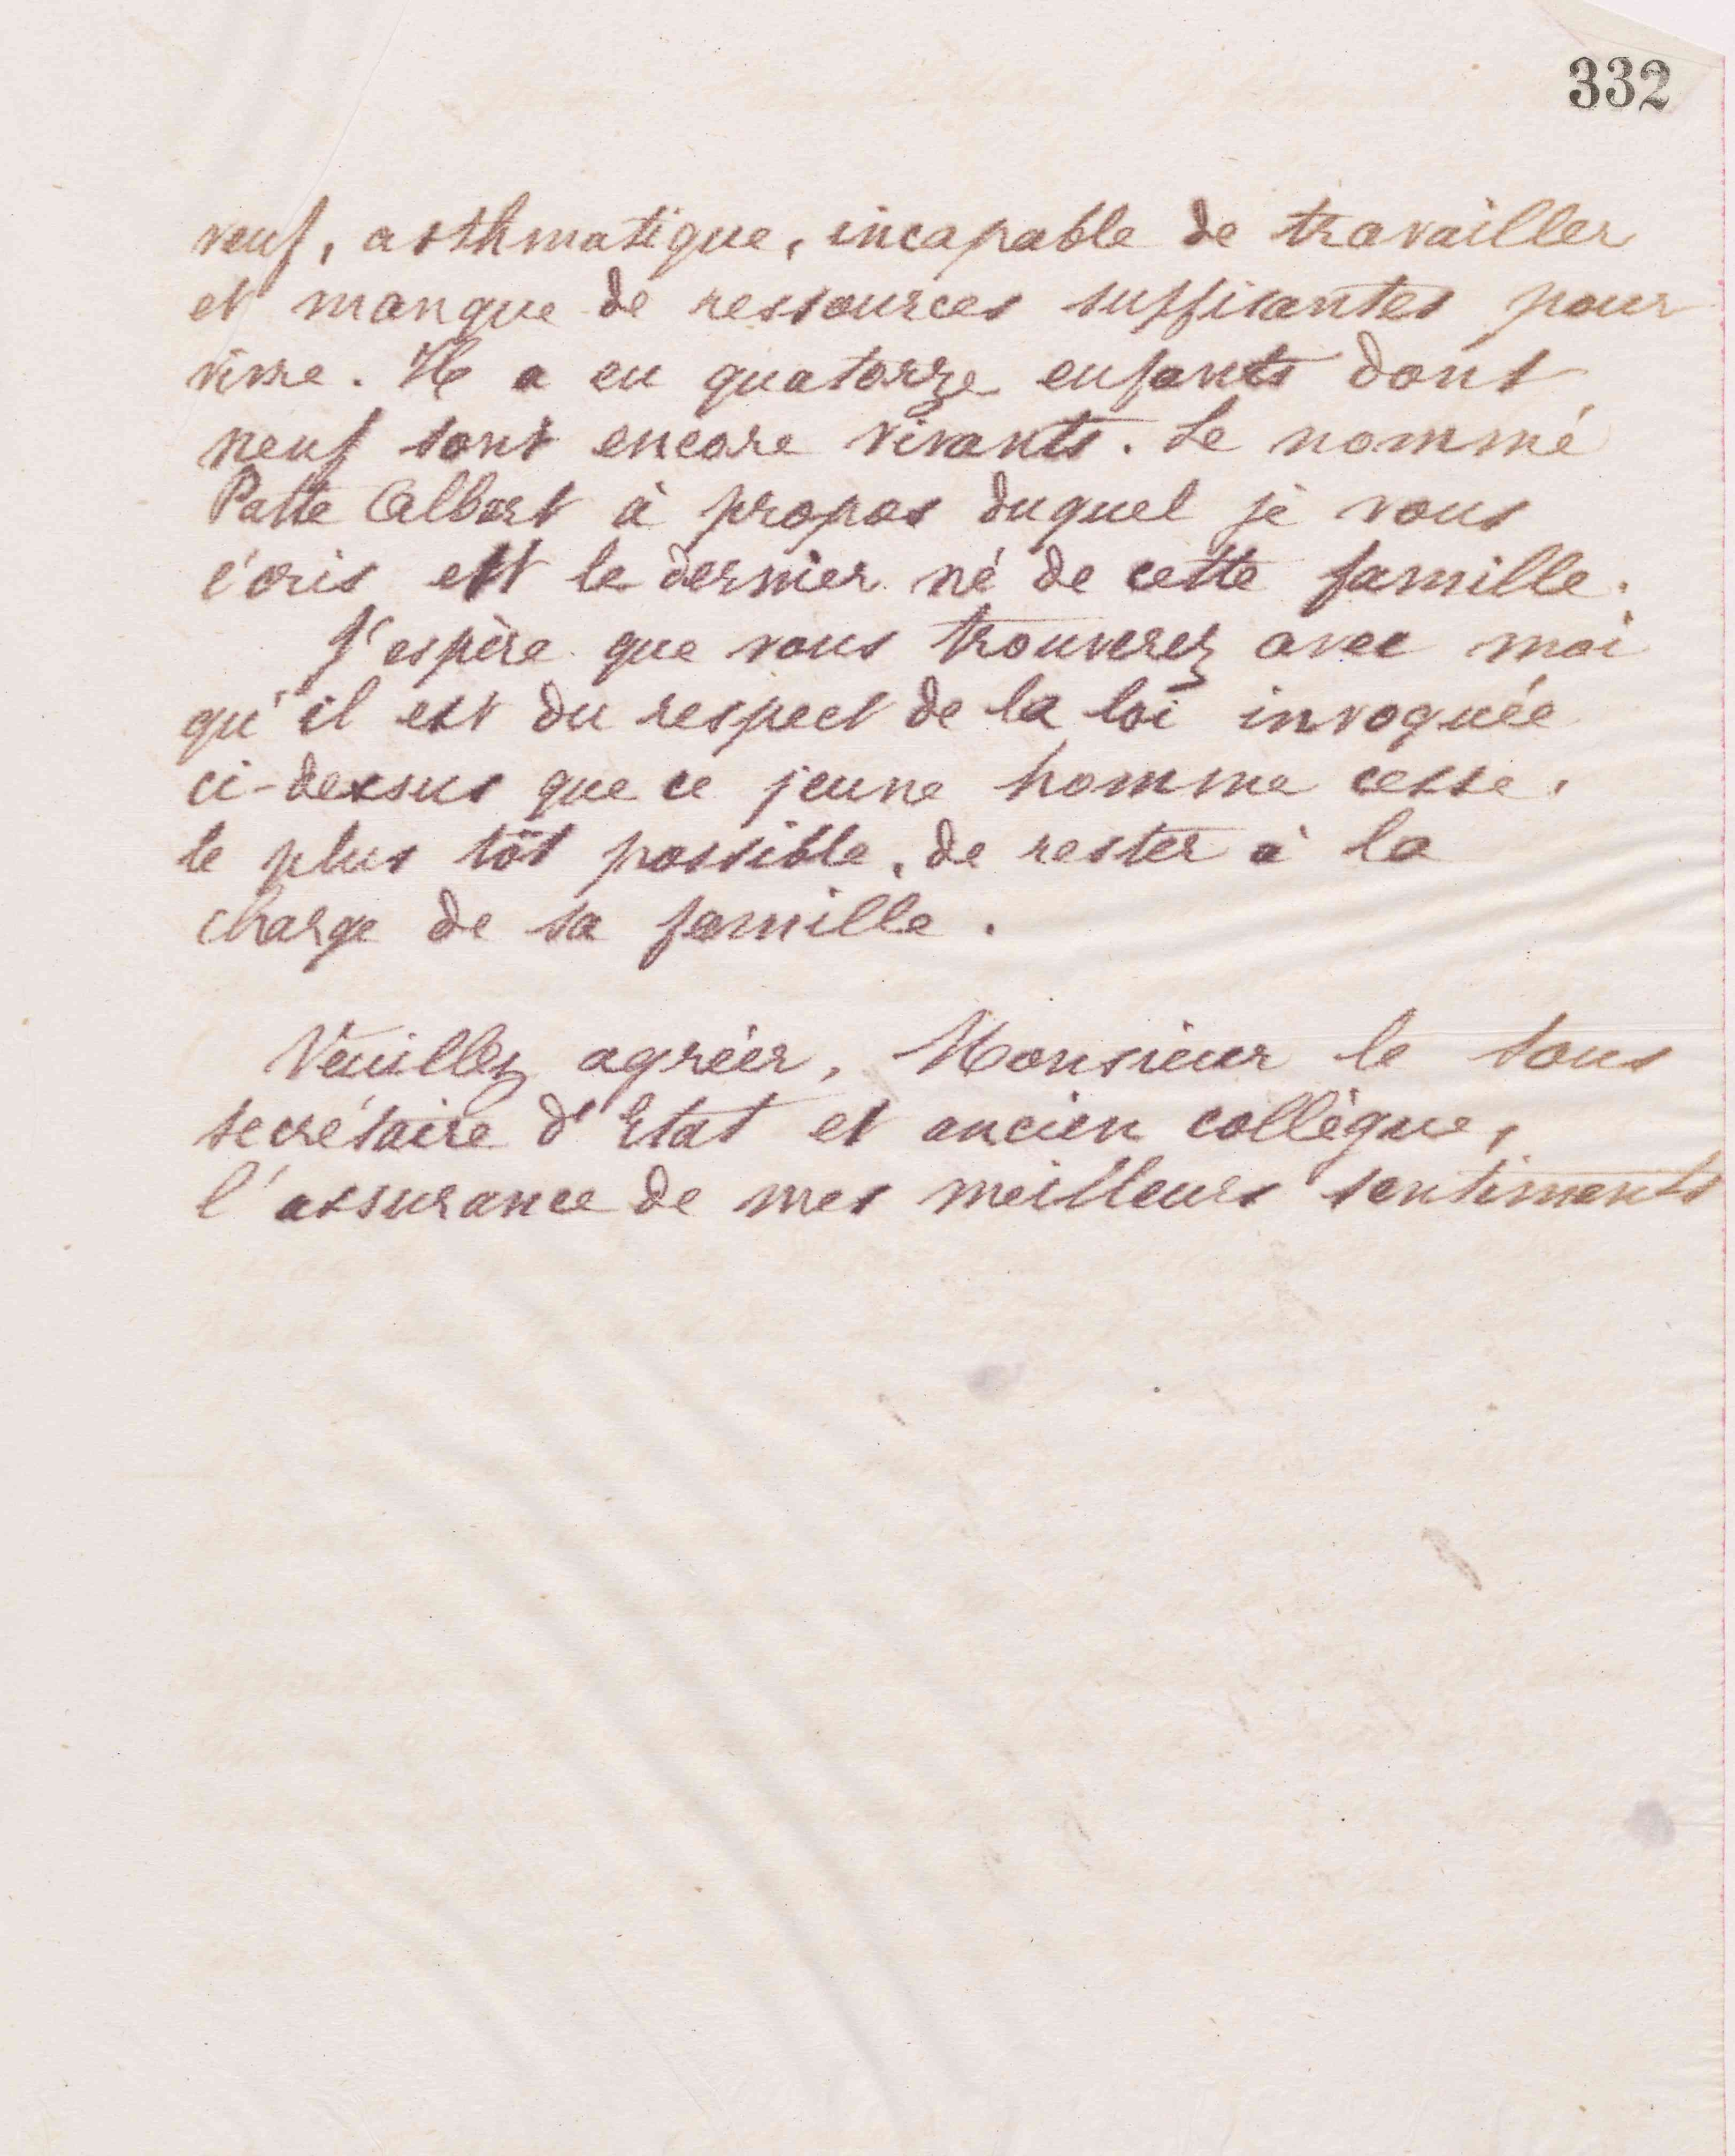 332
veuf, asthmatique, incapable de travailler
et manque de ressources suffisantes pour
vivre. Il a eu quatorze enfants dont
neuf sont encore vivants. Le nommé
Patte Albert à propos duquel je vous
écris est le dernier né de cette famille.
J'espère que vous trouverez avec moi
qu'il est du respect de la loi invoquée
ci-dessus que ce jeune homme cesse,
le plus tôt possible, de rester à la
charge de sa famille.
Veuillez agréer, Monsieur le sous
secrétaire d'Etat et ancien collègue,
l'assurance de mes meilleurs sentiments